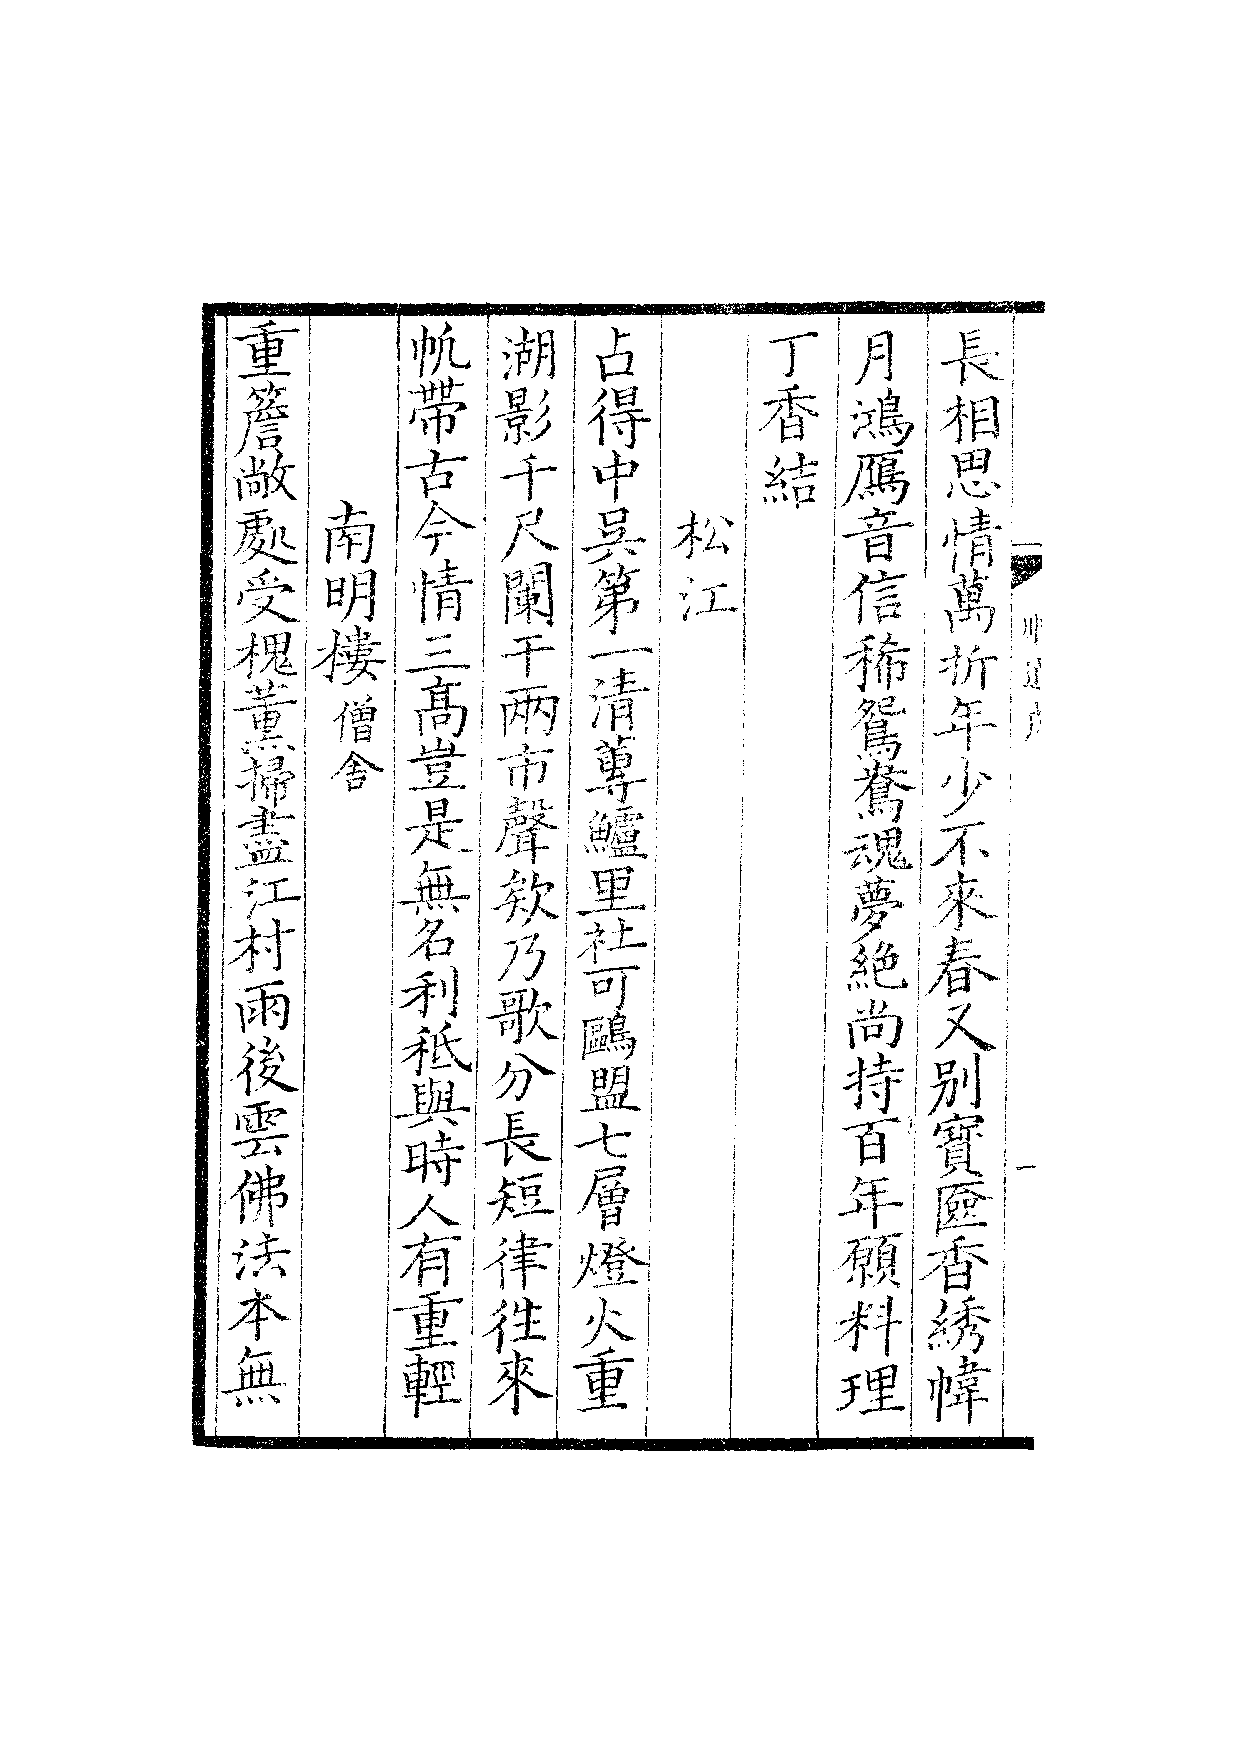 長相思情萬折年少不來春又別寶匳香綉幃
月鴻鴈音信稀鴛鴦魂夢絶尚持百年願料理
丁香結
松江
占得中吳第一清蓴鱸里社可鷗盟七層燈火重
湖影千尺闌干兩市聲欸乃歌分長短律往來
帆帶古今情三髙豈是無名利秪與時人有重輕
南明樓僧舍
重簷敞處受槐薰掃盡江村雨後雲佛法本無